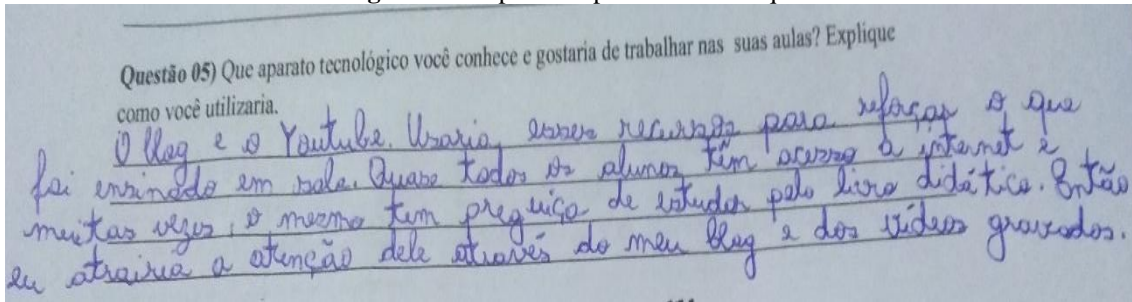 Questão 05) Que aparato tecnológico você conhece e gostaria de trabalhar nas suas aulas? Explique
como você utilizaria.
O blog e o Youtube. Usaria esses recursos para reforçar o que
foi ensinado em sala. Quase todos os alunos têm acesso à internet e
muitas vezes, o mesmo tem preguiça de estudar pelo livro didático. Então
eu atrairia a atenção dele através do meu blog e dos vídeos gravados.